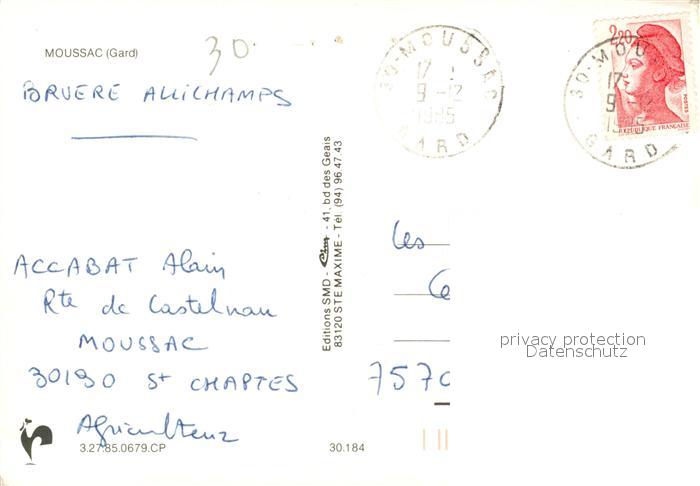 MOUSSAC (Gard)
30
BRUERE ALLICHAMPS
ACCABAT Alain
Rte de Castelnau
MOUSSAC
30190 St CHAPTES
Agriculteur
3.27.85.0679.CP
30.184
Editions SMD - Cim - 41, bd des Geais
83120 STE MAXIME - Tél. (94) 96.47.43
30-MOUSSAC
17
9-12
1985
GARD
2,20
REPUBLIQUE FRANÇAISE
30-MOU
17
9-12
1985
GARD
Les
7570
privacy protection
Datenschutz